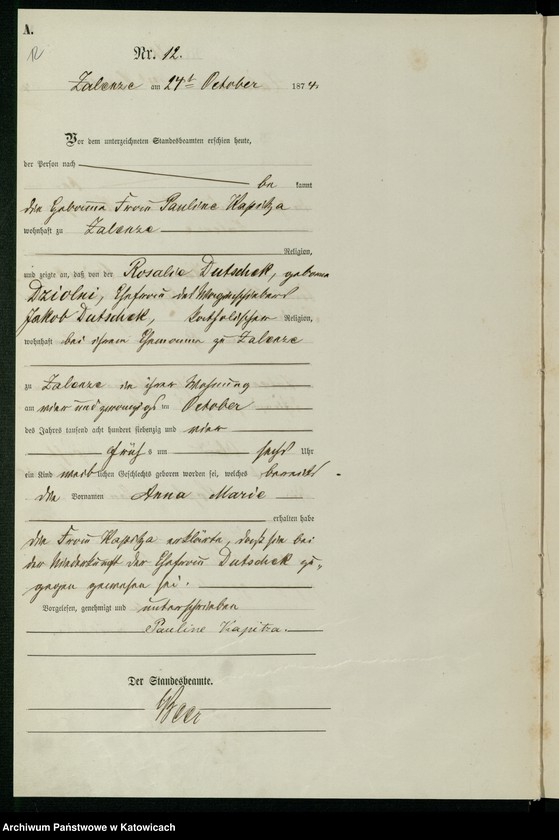 A.
12
Nr. 12.
Zalenze am 24t October 1874
Vor dem unterzeichneten Standesbeamten erschien heute,
der Person nach
be kannt
die Hebamme Frau Pauline Kapitza
wohnhaft zu Zalenze
Religion,
und zeigte an, daß von der Rosalie Dutschek, geborne
Dziolni, Ehefrau des Wagenschiebers
Jakob Dutschek, katholischer Religion,
wohnhaft bei ihrem Ehemanne zu Zalenze
zu Zalenze in ihrer Wohnung
am vier und zwanzigsten October
des Jahres tausend acht hundert siebenzig und vier
früh s um sechs Uhr
ein Kind weiblichen Geschlechts geboren worden sei, welches bereits
die Vornamen Anna Marie
erhalten habe
die Frau Kapitza erklärte, daß sie bei
der Niederkunft der Ehefrau Dutschek zu-
gegen gewesen sei.
Vorgelesen, genehmigt und unterschrieben
Pauline Kapitza.
Der Standesbeamte.
Archiwum Państwowe w Katowicach